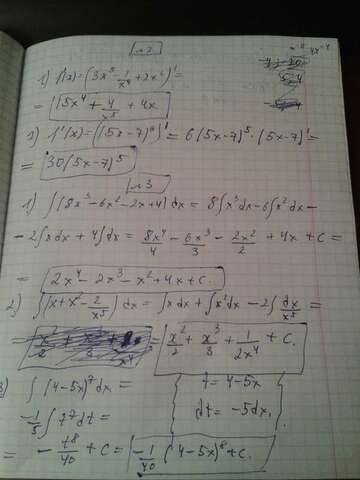 №2
1) f'(x) = (3x⁵ - 1/x⁴ + 2x²)' =
= 15x⁴ + 4/x⁵ + 4x
2) f'(x) = ((5x-7)⁶)' = 6(5x-7)⁵·(5x-7)' =
= 30(5x-7)⁵
№3
1) ∫(8x³ - 6x² - 2x + 4)dx = 8∫x³dx - 6∫x²dx -
- 2∫xdx + 4∫dx = 8x⁴/4 - 6x³/3 - 2x²/2 + 4x + C =
= 2x⁴ - 2x³ - x² + 4x + C.
2) ∫(x + x² - 2/x⁵)dx = ∫xdx + ∫x²dx - 2∫dx/x⁵ =
= x²/2 + x³/3 + 1/2x⁴ + C.
3) ∫(4-5x)⁷dx = t = 4-5x
-1/5 ∫t⁷dt = dt = -5dx
= - t⁸/40 + C = -1/40 (4-5x)⁸ + C.